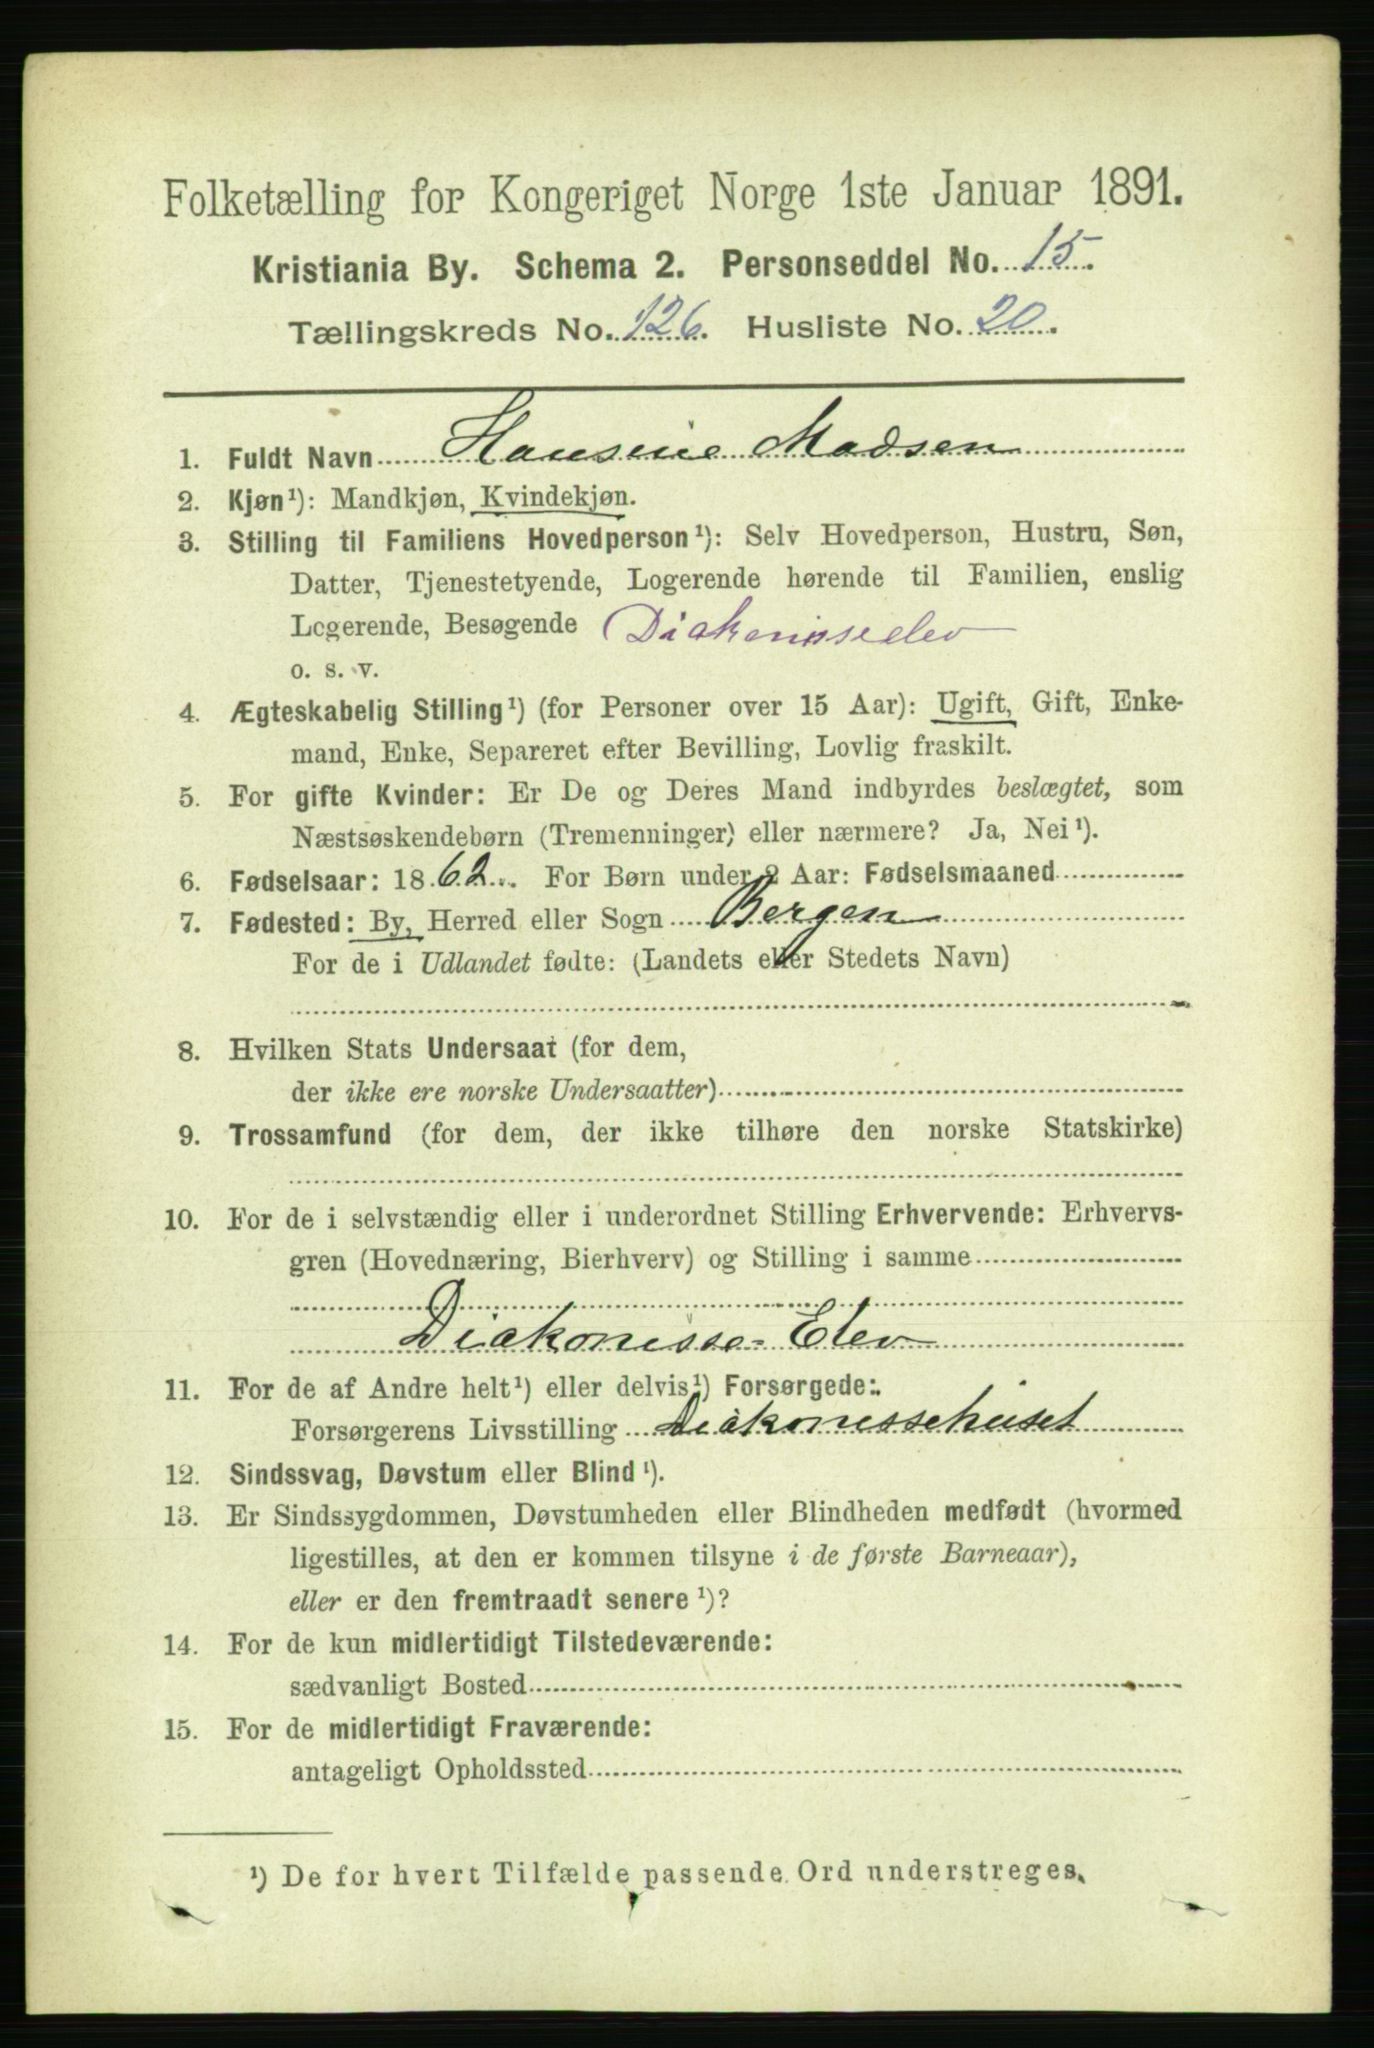 Folketælling for Kongeriget Norge 1ste Januar 1891.
Kristiania By. Schema 2. Personseddel No. 15.
Tællingskreds No. 126. Husliste No. 20.
1. Fuldt Navn Hansine Madsen
2. Kjøn¹): Mandkjøn, Kvindekjøn.
3. Stilling til Familiens Hovedperson¹): Selv Hovedperson, Hustru, Søn,
Datter, Tjenestetyende, Logerende hørende til Familien, enslig
Logerende, Besøgende Diakonisseelev
o. s. v.
4. Ægteskabelig Stilling¹) (for Personer over 15 Aar): Ugift, Gift, Enke-
mand, Enke, Separeret efter Bevilling, Lovlig fraskilt.
5. For gifte Kvinder: Er De og Deres Mand indbyrdes beslægtet, som
Næstsøskendebørn (Tremenninger) eller nærmere? Ja, Nei¹).
6. Fødselsaar: 1862. For Børn under 2 Aar: Fødselsmaaned
7. Fødested: By, Herred eller Sogn Bergen
For de i Udlandet fødte: (Landets eller Stedets Navn)
8. Hvilken Stats Undersaat (for dem,
der ikke ere norske Undersaatter)
9. Trossamfund (for dem, der ikke tilhøre den norske Statskirke)
10. For de i selvstændig eller i underordnet Stilling Erhvervende: Erhvervs-
gren (Hovednæring, Bierhverv) og Stilling i samme
Diakonisse-Elev
11. For de af Andre helt¹) eller delvis¹) Forsørgede:
Forsørgerens Livsstilling Diakonissehuset
12. Sindssvag, Døvstum eller Blind¹).
13. Er Sindssygdommen, Døvstumheden eller Blindheden medfødt (hvormed
ligestilles, at den er kommen tilsyne i de første Barneaar),
eller er den fremtraadt senere¹)?
14. For de kun midlertidigt Tilstedeværende:
sædvanligt Bosted
15. For de midlertidigt Fraværende:
antageligt Opholdssted
¹) De for hvert Tilfælde passende Ord understreges.